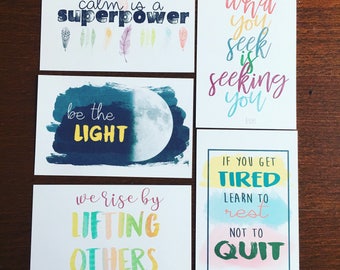 calm is a
superpower
what
you
seek is
seeking
you
be the
LIGHT
we rise by
LIFTING
OTHERS
IF YOU GET
TIRED
LEARN TO
rest
NOT TO
QUIT